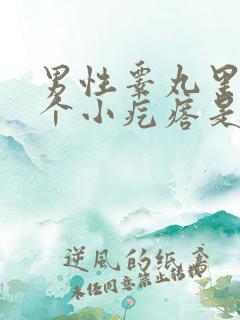 男性睾丸里
个小疙瘩是
逆风的纸鸢
未经同意禁止转载